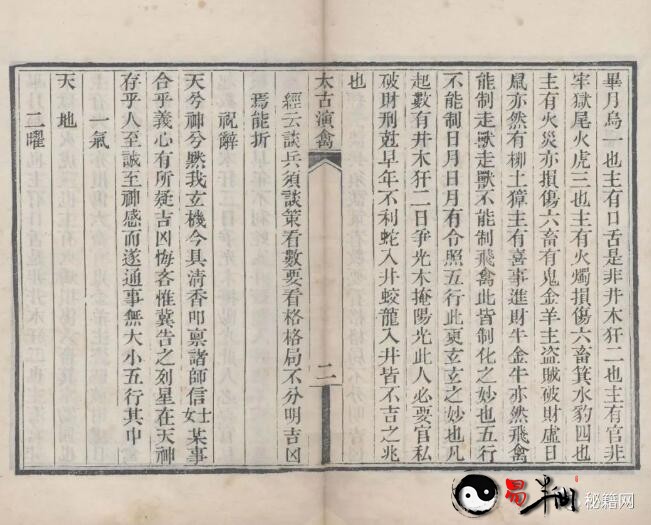 畢月烏一也主有口舌是非井木犴二也主有官非
牢獄尾火虎三也主有火燭損傷六畜箕水豹四也
主有火災亦損傷六畜有鬼金羊主盜賊破財虛日
鼠亦然有柳土獐主有喜事進財牛金牛亦然飛禽
能制走獸走獸不能制飛禽此皆制化之妙也五行
不能制日月日月有令照五行此更玄玄之妙也凡
起數有井木犴二日爭光木掩陽光此人必要官私
破財刑尅早年不利蛇入井蛟龍入井皆不吉之兆
也
太古演禽
二
經云談兵須談策看數要看格格局不分明吉凶
焉能折
祝辭
天兮神兮默我玄機今具清香叩禀諸師信士女某事
合乎義心有所疑吉凶悔吝惟冀告之列星在天神
存乎人至誠至神感而遂通事無大小五行其中
一氣
天地
二曜
易
秘籍网